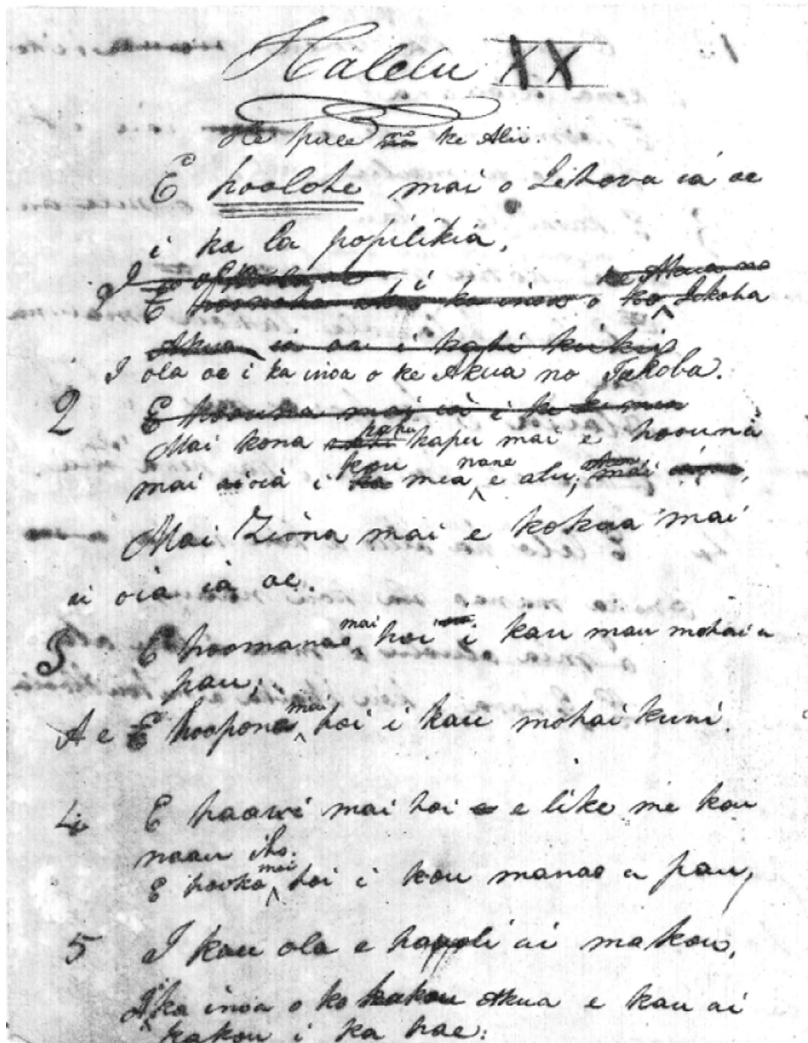 Halelu XX
He pule no ke Alii.
E hoolohe mai o Iehova ia oe
i ka la popilikia,
I ola oe i ka inoa o ke Akua no Iakoba.
2 Mai kona kapu mai e hoouna
mai ai oia i kou mea nane e alu;
Mai Ziona mai e kokua mai
ai oia ia oe.
3 E hoomanao mai hoi i kau mau mohai a
pau;
A e hoopono mai hoi i kau mohai kuni.
4 E haawi mai hoi e like me kou
naau iho.
E hooko mai hoi i kou manao a pau,
5 I kau ola e hauoli ai makou,
I ka inoa o ko kakou Akua e kau ai
kakou i ka hae: